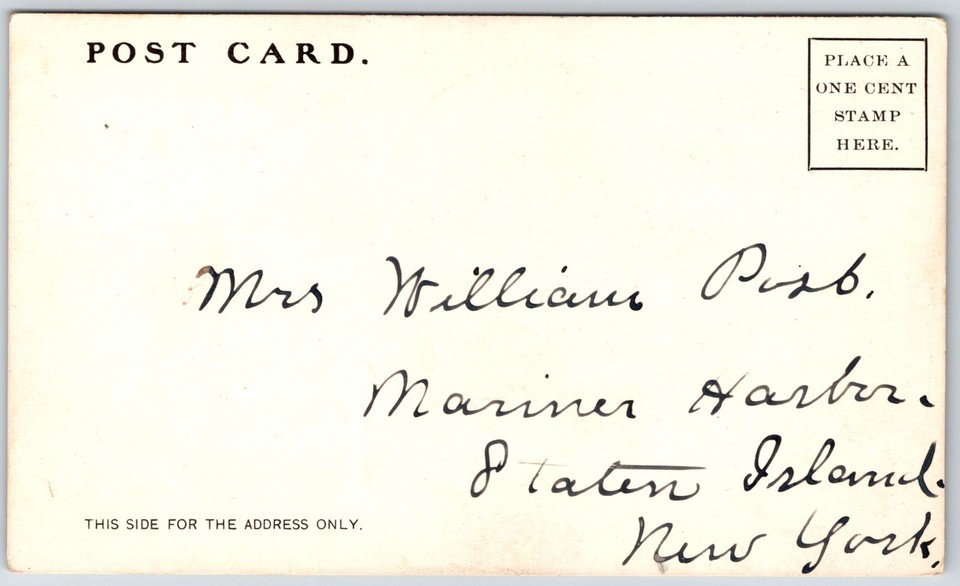 POST CARD.
PLACE A
ONE CENT
STAMP
HERE.
Mrs William Post.
Mariner Harbor.
Staten Island.
New York.
THIS SIDE FOR THE ADDRESS ONLY.